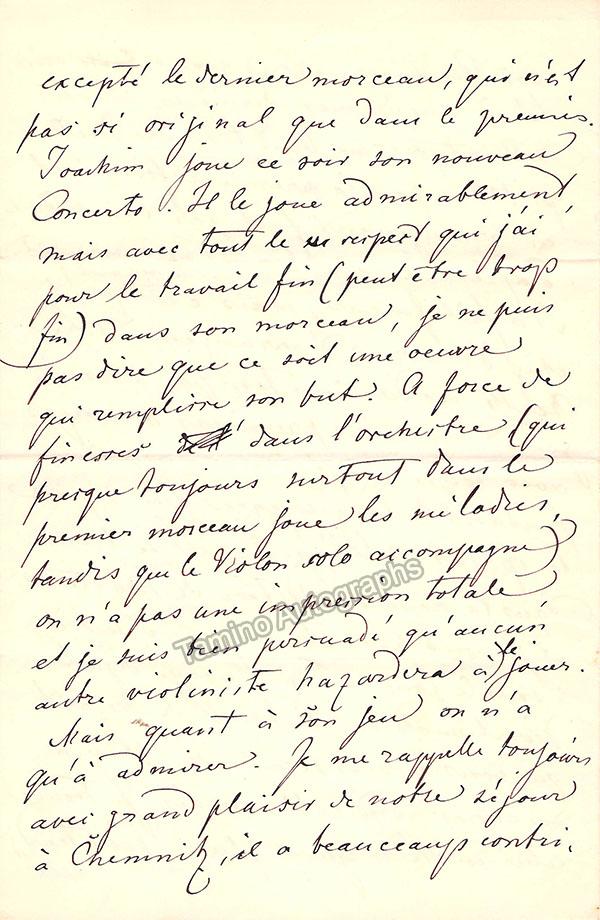 excepté le dernier morceau, qui n'est
pas si original que dans le premier.
Joachim joue ce soir son nouveau
Concerto. Il le joue admirablement,
mais avec tout le respect qui j'ai
pour le travail fin (peut être trop
fin) dans son morceau, je ne puis
pas dire que ce soit une oeuvre
qui remplisse son but. A force de
finesses dans l'orchestre (qui
presque toujours surtout dans le
premier morceau joue les mélodies,
tandis que le Violon solo accompagne)
on n'a pas une impression totale
et je suis bien persuadé qu'aucun
autre violiniste hazardera à le jouer.
Mais quant à son jeu on n'a
qu'à admirer. Je me rappelle toujours
avec grand plaisir de notre séjour
à Chemnitz, il a beaucoups contri-
Tamino Autographs